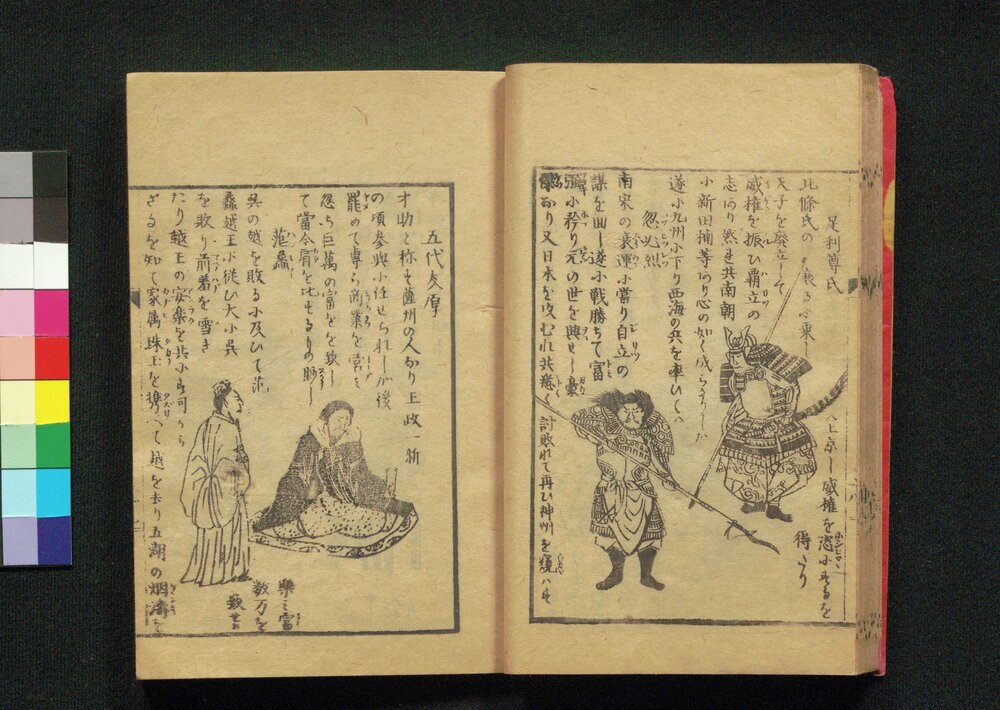 足利尊氏
北條氏の衰るに乗し
天子を廃立して
威権を振ひ覇立の
志あり然れ共南朝
に新田楠等あり心の如く成らさりしか
遂に九州に下り西海の兵を率ひて
上京し威権を恣にするを
得たり
忽必烈
南宋の衰運に當り自立の
謀を回し遂に戦勝ちて富
強に矜り元の世を興せし豪
傑なり又日本を攻むれ共悉く討敗れて再ひ神州を窺ハす
五代友厚
才助と称す薩州の人なり王政一新
の頃参與に任せられしが後
罷めて専ら商業を営み
忽ち巨萬の富を致し
て當今肩を比するもの尠し
范蠡
呉の越を敗るに及ひて范
蠡越王に従ひ大に呉
を敗り前羞を雪き
たり越王の安楽を共にす可から
ざるを知て家属珠玉を携へて越を去り五湖の烟濤に
楽み富
数万を
致せり